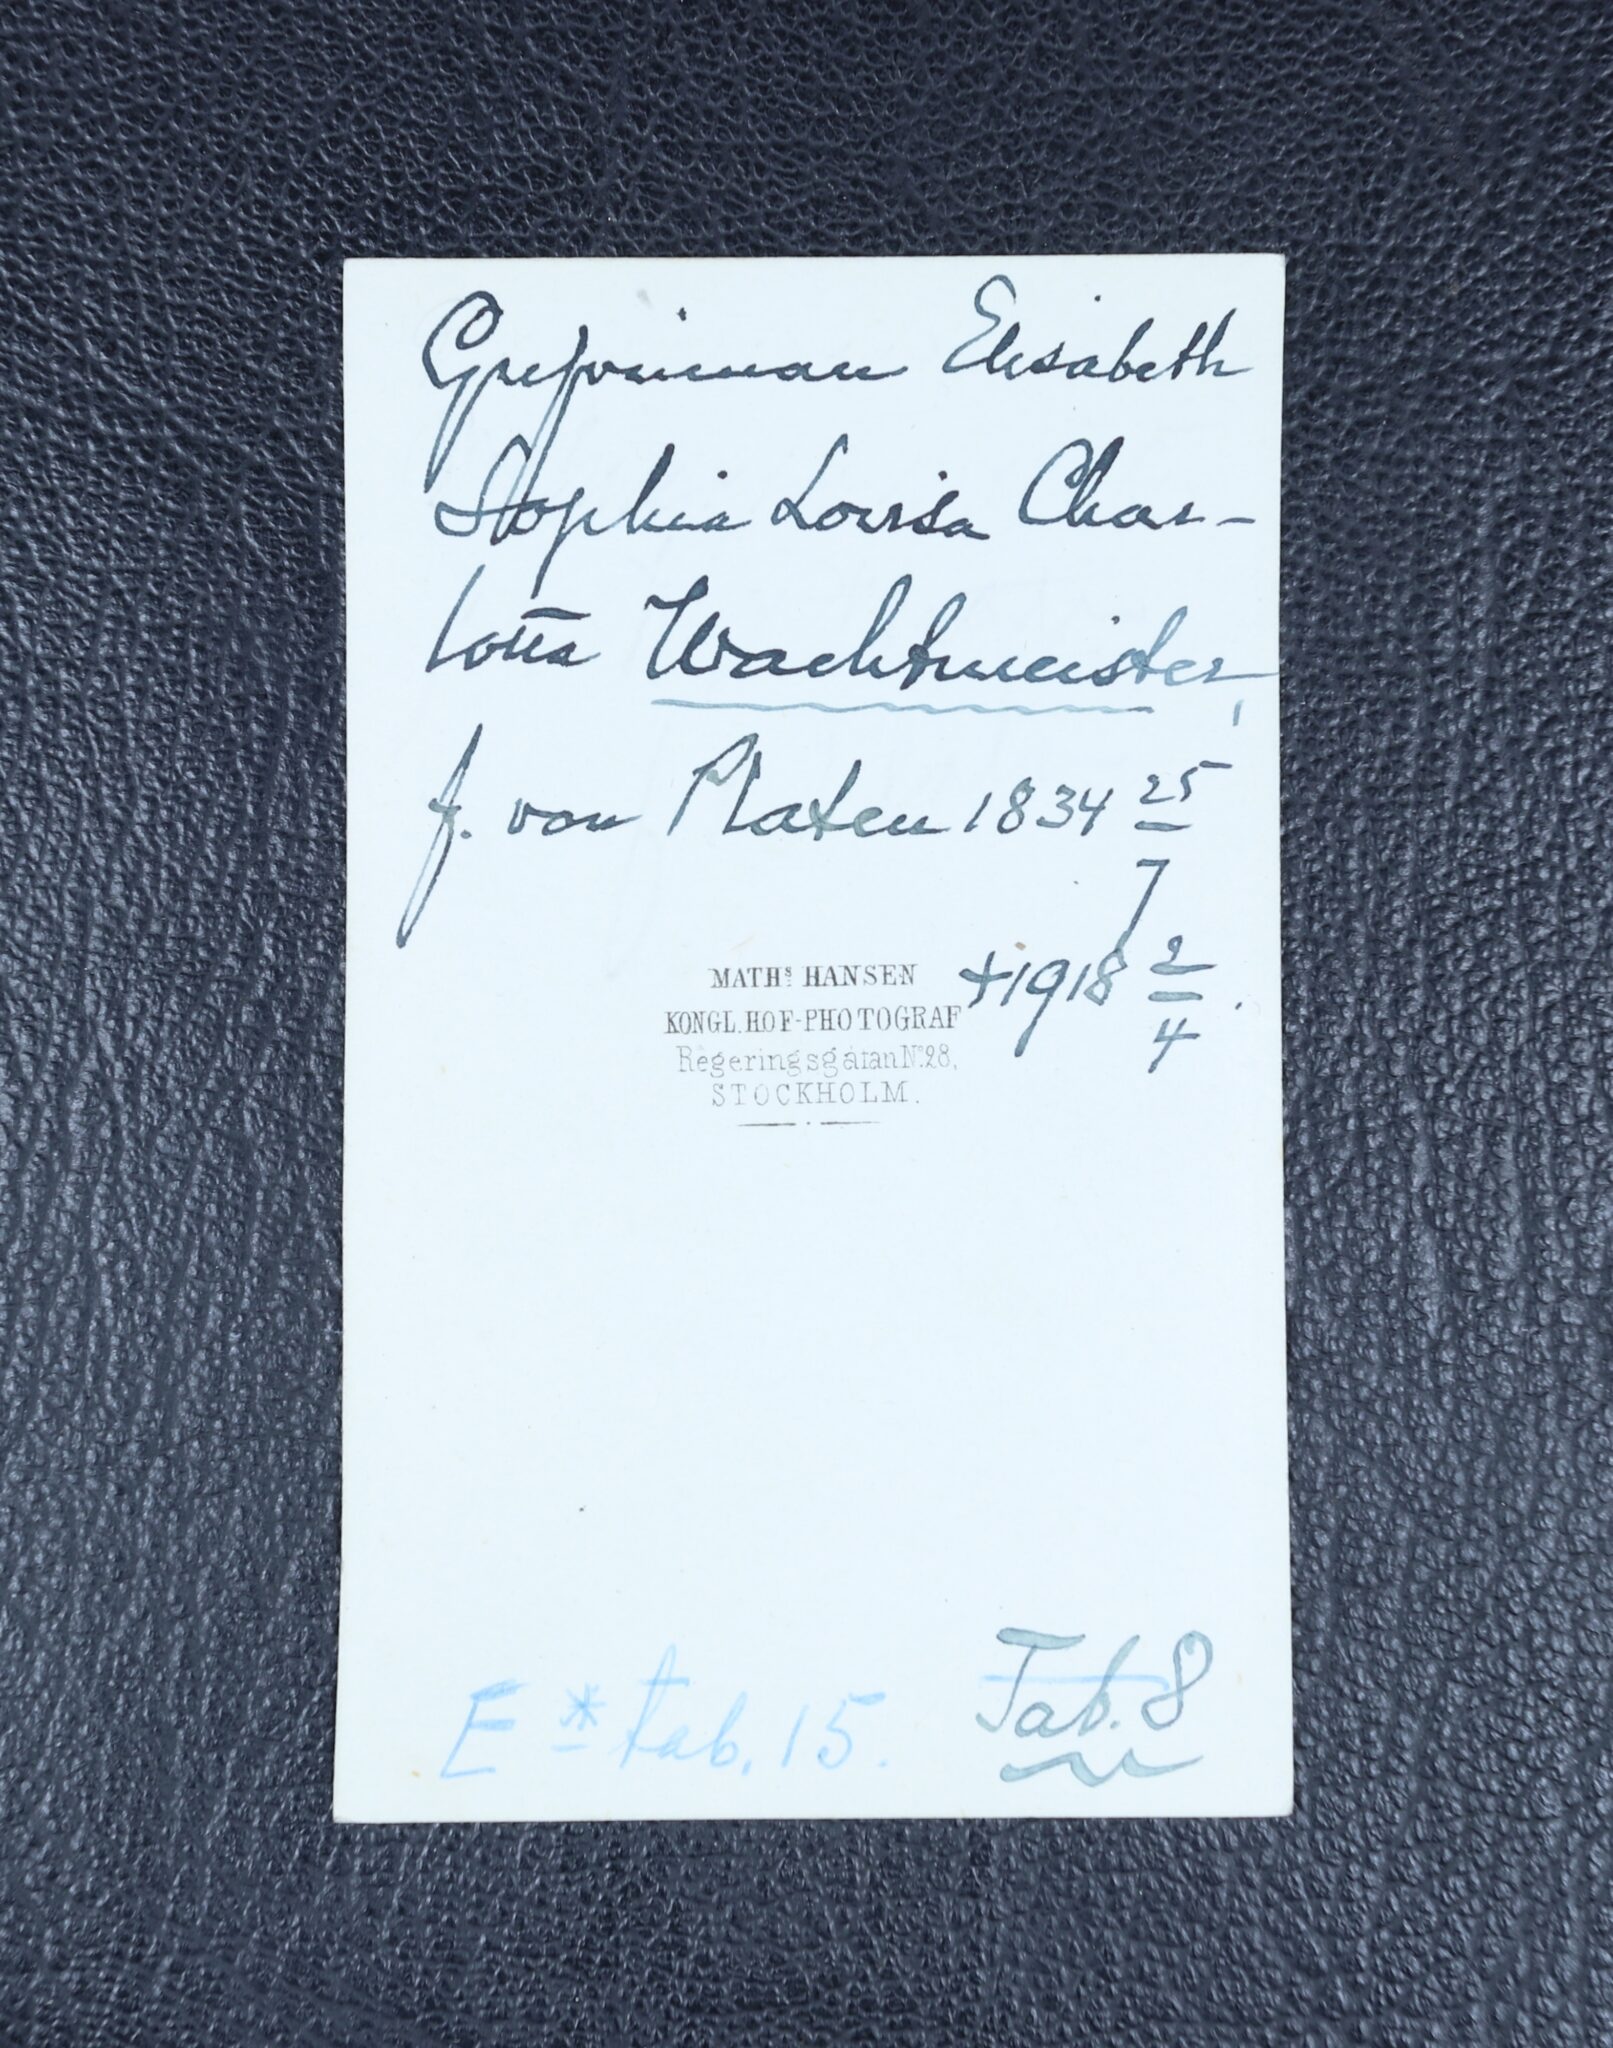 Grefvinnan Elisabeth
Sophia Lovisa Char-
lotta Wachtmeister,
f. von Platen 1834 25/7
+1918 2/4.
MATHS HANSEN
KONGL. HOF-PHOTOGRAF
Regeringsgatan No 28,
STOCKHOLM.
Tab. 8
E * tab. 15.